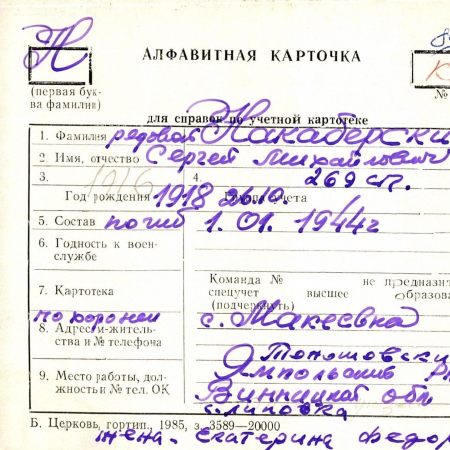 Н
АЛФАВИТНАЯ КАРТОЧКА
(первая бук-
ва фамилии)
К
№
для справок по учетной картотеке
1. Фамилия редовой Накаберски
2. Имя, отчество Сергей Михайлович
3. 1916 4. 269 сп.
Год рождения 1918 учета
5. Состав погиб 1.01.1944г
6. Годность к воен-
службе
7. Картотека
Команда № не предназнт
спецучет высшее образова
(подчеркнуть)
похоронен с. Макеевка
8. Адрес м-житель-
ства и № телефона
Ямпольский
9. Место работы, дол-
жность и № тел. ОК
Винницкой обл
с. Липовка
Б. Церковь, гортип., 1985, з. 3589—20000
жена - Екатерина Федор